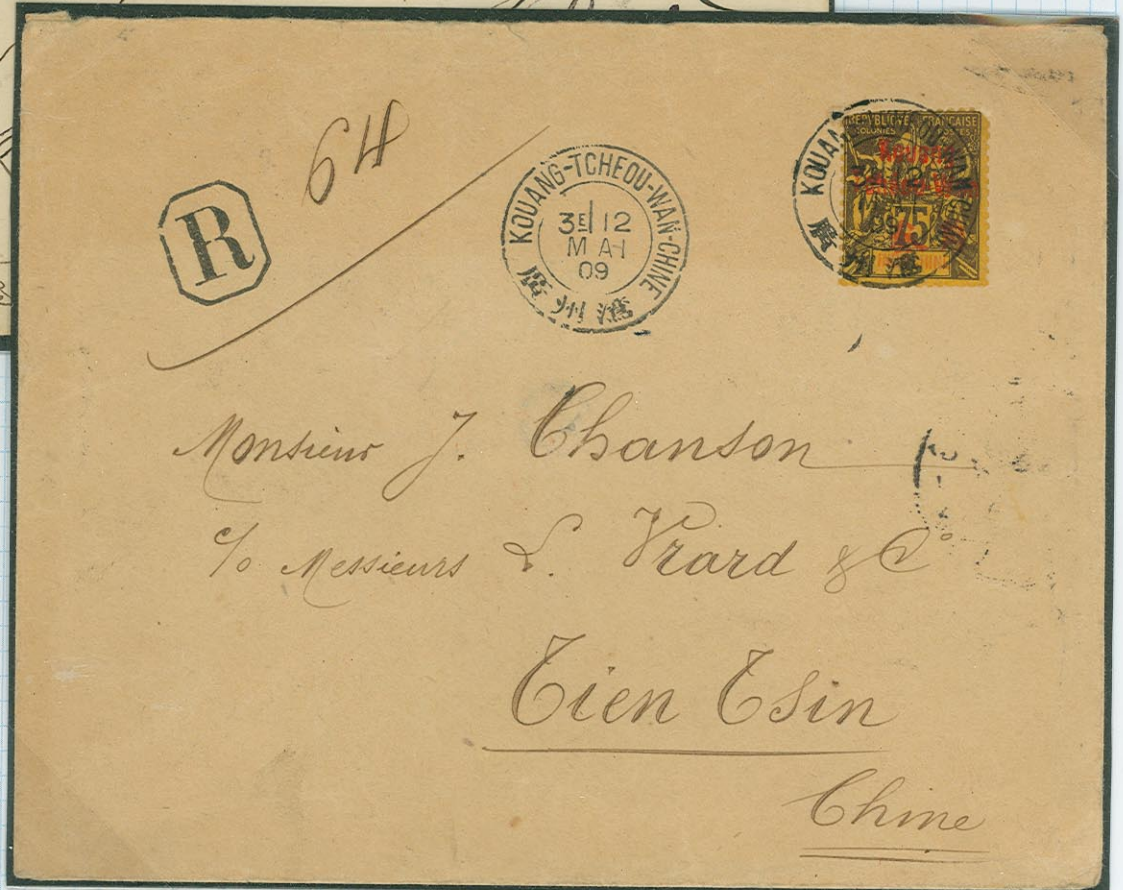 64
R
KOUANG-TCHEOU-WAN-CHINE
3E 12
MAI
09
廣州灣
REPUBLIQUE FRANCAISE
COLONIES POSTES
75
KOUANG
廣州灣
Monsieur J. Chanson
c/o Messieurs L. Vrard & Co
Tien Tsin
Chine